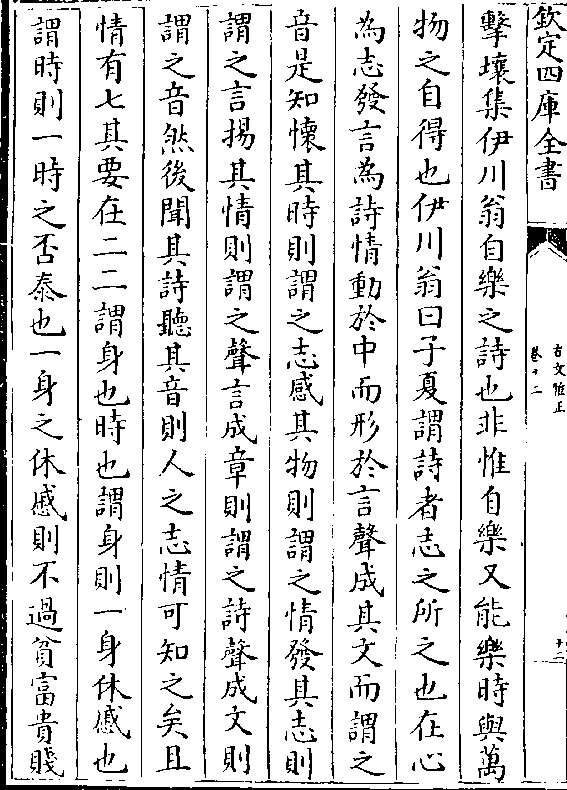 欽定四庫全書
古文雅正
卷十二
十二
擊壤集伊川翁自樂之詩也非惟自樂又能樂時與萬
物之自得也伊川翁曰子夏謂詩者志之所之也在心
為志發言為詩情動於中而形於言聲成其文而謂之
音是知懷其時則謂之志感其物則謂之情發其志則
謂之言揚其情則謂之聲言成章則謂之詩聲成文則
謂之音然後聞其詩聽其音則人之志情可知之矣且
情有七其要在二二謂身也時也謂身則一身休慼也
謂時則一時之否泰也一身之休慼則不過貧富貴賤